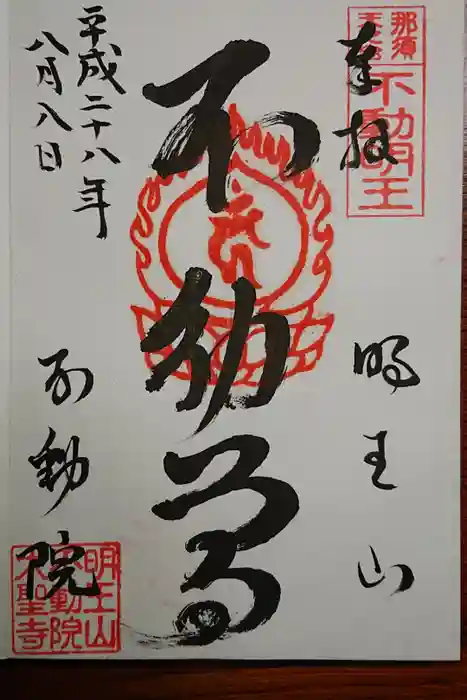 奉拝
那須
不動明王
明王山
不動尊
平成二十八年
八月八日
不動院
明王山
不動院
大聖寺